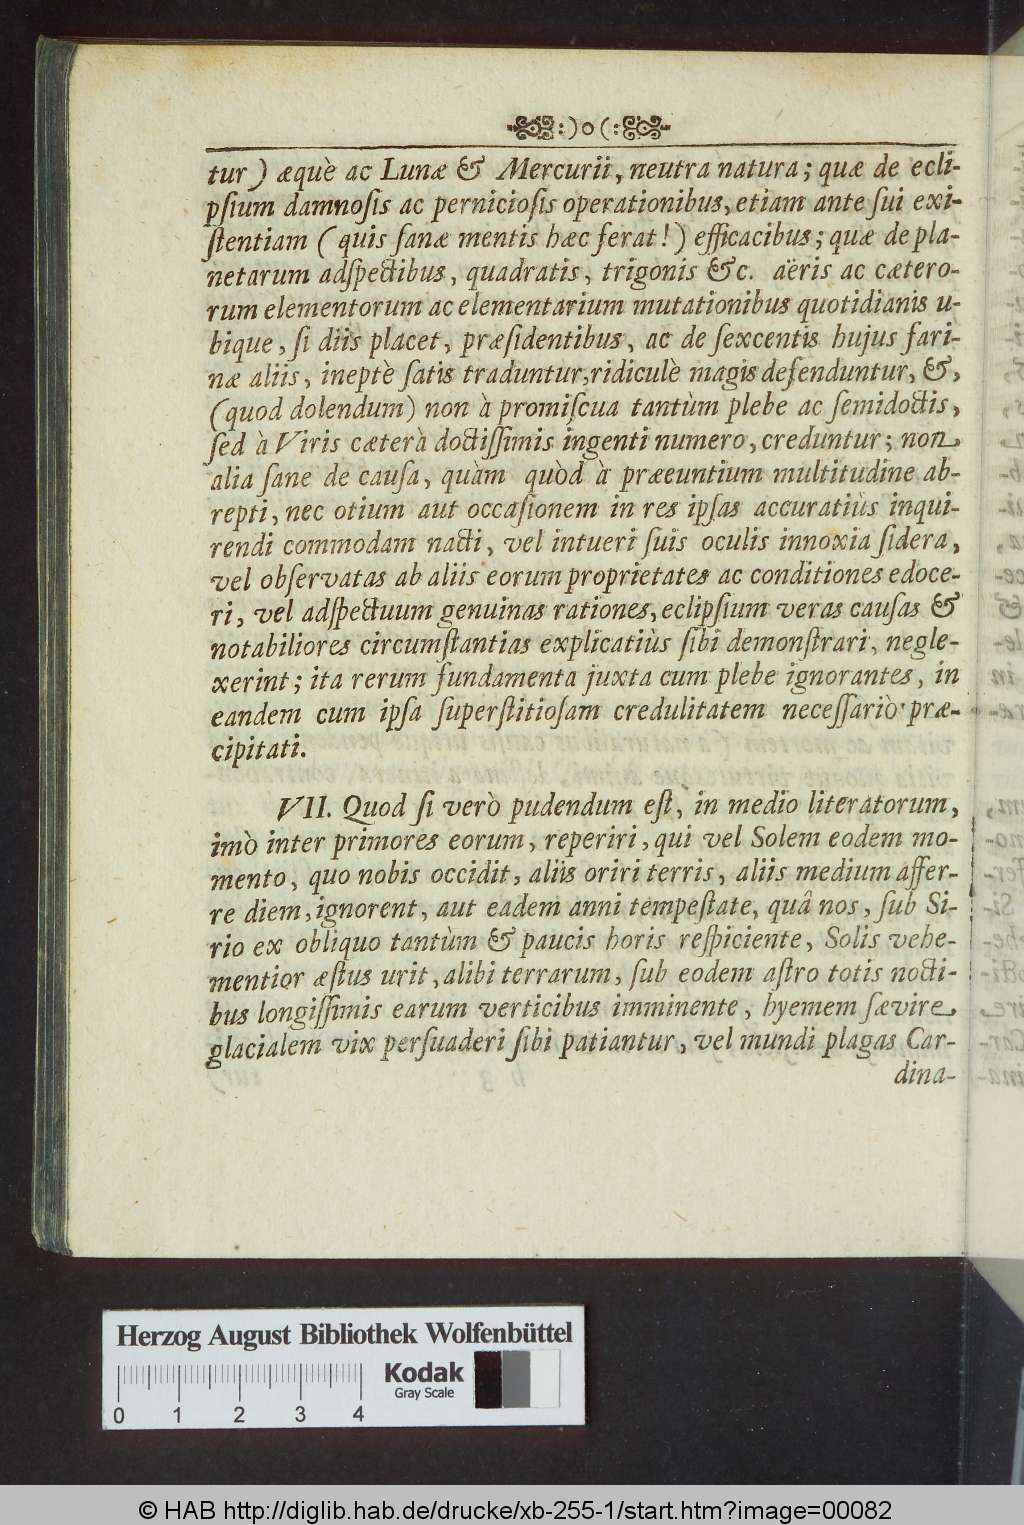 :)o(:
tur) æquè ac Lunæ & Mercurii, neutra natura; quæ de ecli-
pſium damnoſis ac pernicioſis operationibus, etiam ante ſui exi-
ſtentiam (quis ſanæ mentis hæc ferat!) efficacibus; quæ de pla-
netarum adſpectibus, quadratis, trigonis &c. aëris ac cætero-
rum elementorum ac elementarium mutationibus quotidianis u-
bique, ſi diis placet, præſidentibus, ac de ſexcentis hujus fari-
næ aliis, ineptè ſatis traduntur, ridiculè magis defenduntur, &,
(quod dolendum) non à promiſcua tantùm plebe ac ſemidoctis,
ſed à Viris cæterà doctiſſimis ingenti numero, creduntur; non
alia ſane de cauſa, quàm quòd à præeuntium multitudine ab-
repti, nec otium aut occaſionem in res ipſas accuratiùs inqui-
rendi commodam nacti, vel intueri ſuis oculis innoxia ſidera,
vel obſervatas ab aliis eorum proprietates ac conditiones edoce-
ri, vel adſpectuum genuinas rationes, eclipſium veras cauſas &
notabiliores circumſtantias explicatiùs ſibi demonſtrari, negle-
xerint; ita rerum fundamenta juxta cum plebe ignorantes, in
eandem cum ipſa ſuperſtitioſam credulitatem neceſſariò præ-
cipitati.
VII. Quod ſi verò pudendum eſt, in medio literatorum,
imò inter primores eorum, reperiri, qui vel Solem eodem mo-
mento, quo nobis occidit, aliis oriri terris, aliis medium affer-
re diem, ignorent, aut eadem anni tempeſtate, quâ nos, ſub Si-
rio ex obliquo tantùm & paucis horis reſpiciente, Solis vehe-
mentior æſtus urit, alibi terrarum, ſub eodem aſtro totis nocti-
bus longiſſimis earum verticibus imminente, hyemem ſævire
glacialem vix perſuaderi ſibi patiantur, vel mundi plagas Car-
dina-
Herzog August Bibliothek Wolfenbüttel
Kodak
Gray Scale
0 1 2 3 4
© HAB http://diglib.hab.de/drucke/xb-255-1/start.htm?image=00082